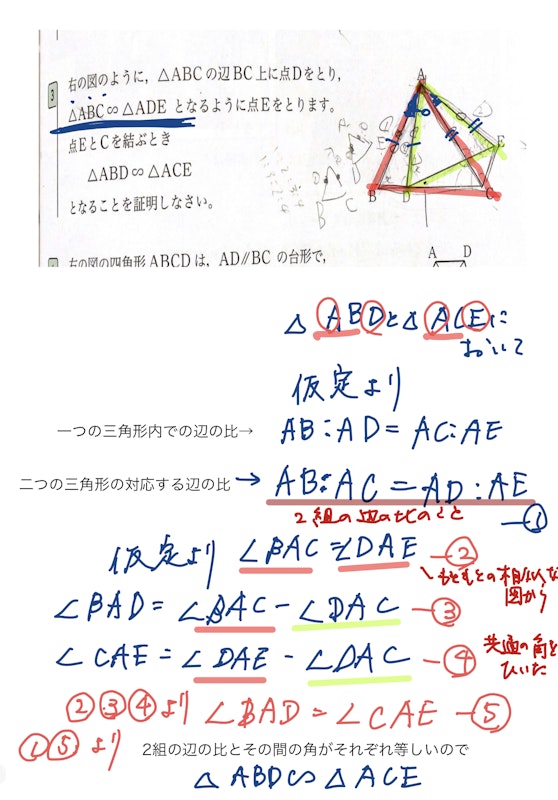 3
右の図のように,△ABCの辺BC上に点Dをとり,
△ABC∽△ADE となるように点Eをとります。
点EとCを結ぶとき
△ABD∽△ACE
となることを証明しなさい。
A
E
B
D
C
B
C
右の図の四角形ABCDは,AD∥BCの台形で,
A D
△ABDと△ACEに
おいて
仮定より
一つの三角形内での辺の比→ AB:AD=AC:AE
二つの三角形の対応する辺の比→ AB:AC=AD:AE
2組の辺の比のこと ー①
仮定より ∠BAC=∠DAE ー②
もともとの相似な
図から
∠BAD=∠BAC-∠DAC ー③
∠CAE=∠DAE-∠DAC ー④
共通の角を
ひいた
②③④より ∠BAD=∠CAE ー⑤
①⑤より 2組の辺の比とその間の角がそれぞれ等しいので
△ABD∽△ACE